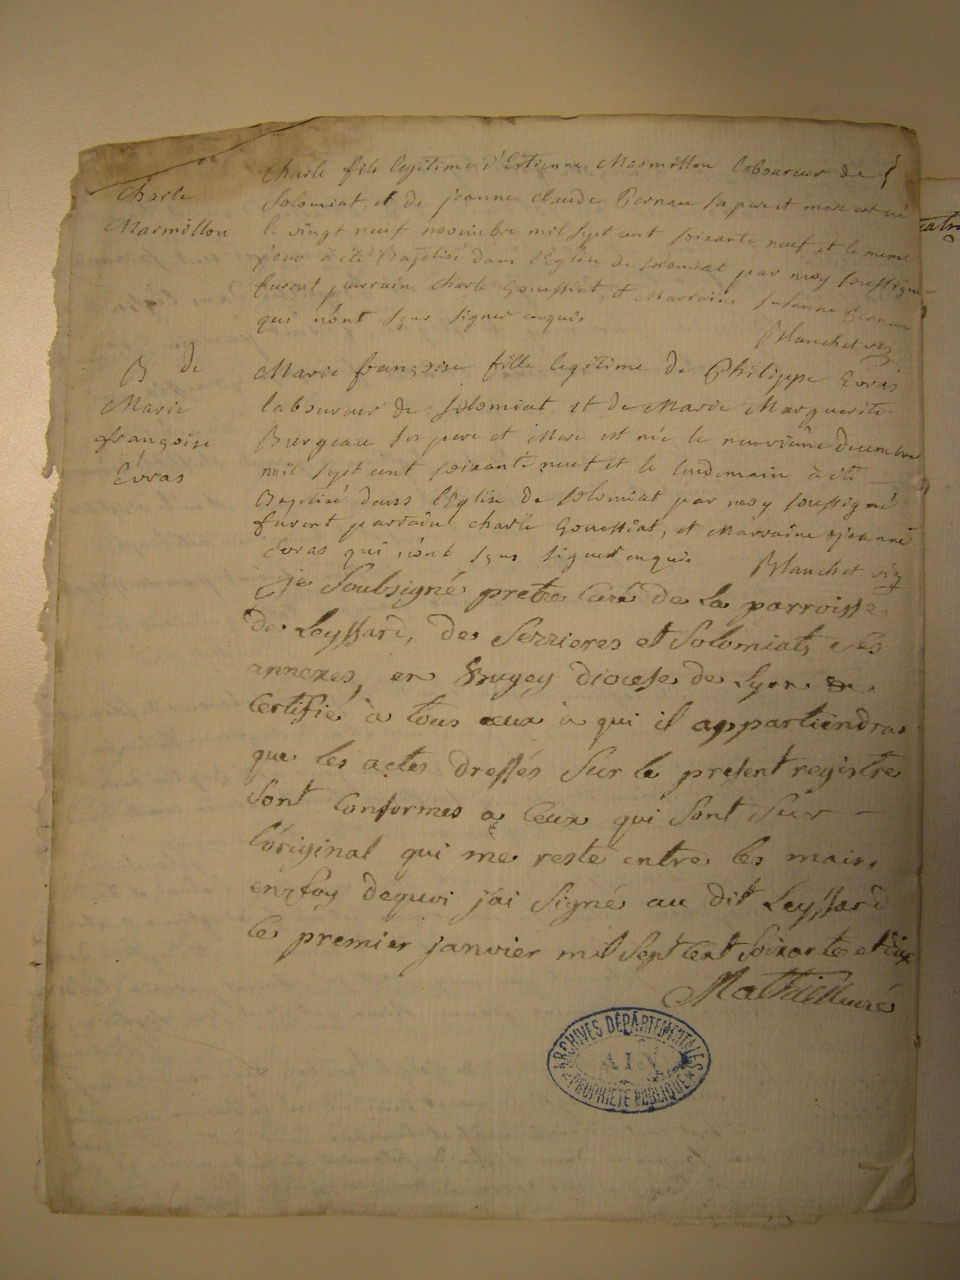 Charle
Marmillon
Charle fils legitime d'Estienne Marmillon laboureur de
Solomiat, et de jeanne claude Bernau sa pere et mere est né
le vingt neuf novembre mil sept cent soixante neuf et le meme
jour à été Baptisé dans l'Eglise de solomiat par moy soussigné
furent parrain charle Gouessiat, et Marraine susanne Bernau
qui n'ont sçus signer enquis
Blanchet vic
B de
Marie
françoise
Évras
Marie françoise fille legitime de Philippe Evras
laboureur de solomiat et de Marie Marguerite
Burgeau ses pere et Mere est née le neuvieme decembre
mil sept cent soixante neuf et le lendemain à été
Baptisé dans l'Eglise de solomiat par moy soussigné
furent parrain charle Gouessiat, et Marraine jeanne
Evras qui n'ont sçus signer enquis
Blanchet vic
je Soubsigné pretre Curé de La parroisse
de Leyssard, de Serrieres et Solomiat, ses
annexes, en Bugey diocese de Lyon
Certifie à tous ceux à qui il appartiendra
que les actes dressés Sur le present registre
Sont Conformes a Ceux qui Sont Sur
l'original qui me reste entre les mains
en foy dequoi j'ai Signé au dit Leyssard
le premier janvier mil Sept Cent Soixante et dix
Mathie curé
ARCHIVES DÉPARTEMENTALES
AIN
PROPRIÉTÉ PUBLIQUE